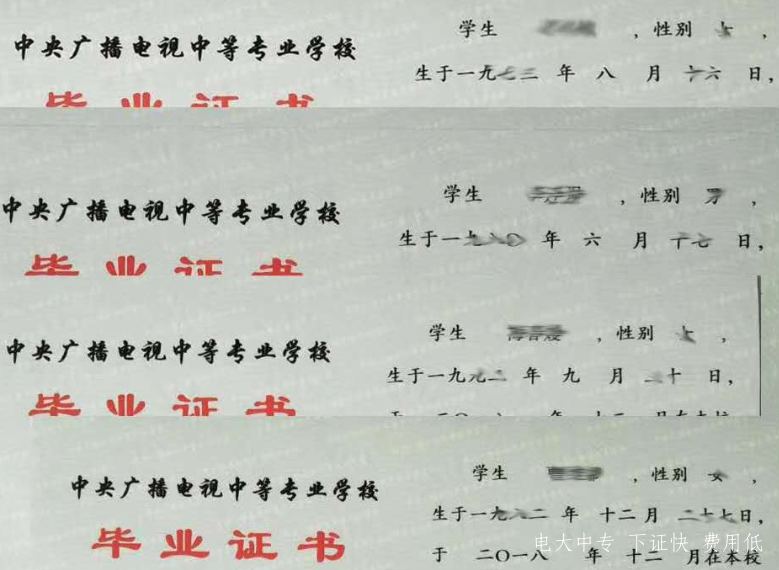 中央广播电视中等专业学校
毕业证书
学生 ，性别 ，
生于一九七三 年 八 月 十六 日，
中央广播电视中等专业学校
毕业证书
学生 ，性别 男 ，
生于一九 〇 年 六 月 十七 日，
中央广播电视中等专业学校
毕业证书
学生 ，性别 女 ，
生于一九 二 年 九 月 十 日，
于 二〇一八 年 十二 月在本校
中央广播电视中等专业学校
毕业证书
学生 ，性别 女 ，
生于一九 二 年 十二 月 二十七日，
于 二〇一八 年 十二 月在本校
电大中专 下证快 费用低